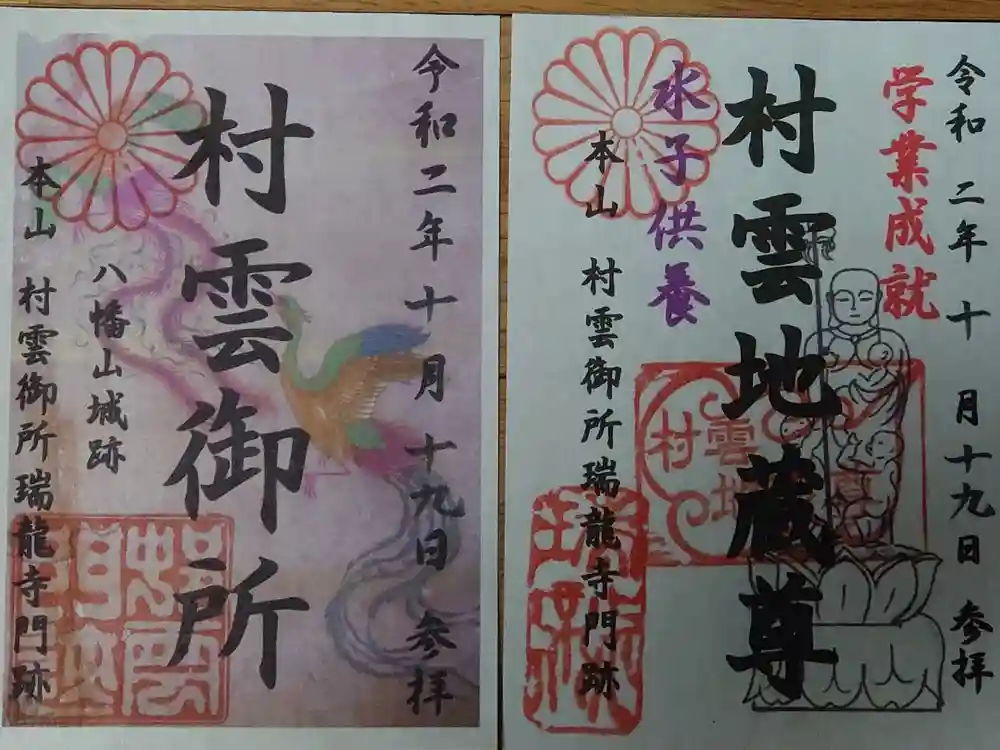 令和二年十月十九日 参拝
村雲御所
八幡山城跡
本山 村雲御所瑞龍寺門跡
令和 二年 十 月十九日 参拝
学業成就
村雲地蔵尊
水子供養
本山 村雲御所瑞龍寺門跡
村雲地